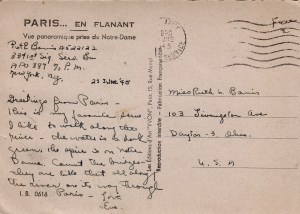 PARIS... EN FLANANT
Vue panoramique prise du Notre-Dame
Pvt E Bavis A
3341st Sig. Serv. Bn
APO 887 % P.M.
New York, N.Y.
23 June '45
Greetings from Paris -
This is my favorite
I like to walk along the
river - the water is a dark
green. The spire is on Notre
Dame. Count the bridges -
they are like that all along
the river on its way through
Paris - Love
I. B. 0616
Les Editions d'Art "YVON", Paris, 15, Rue Martel
Reproduction Interdite - Fabrication Française
Free
Miss Ruth M. Bavis
103 Livingston Ave
Dayton - 3, Ohio.
U.S.A